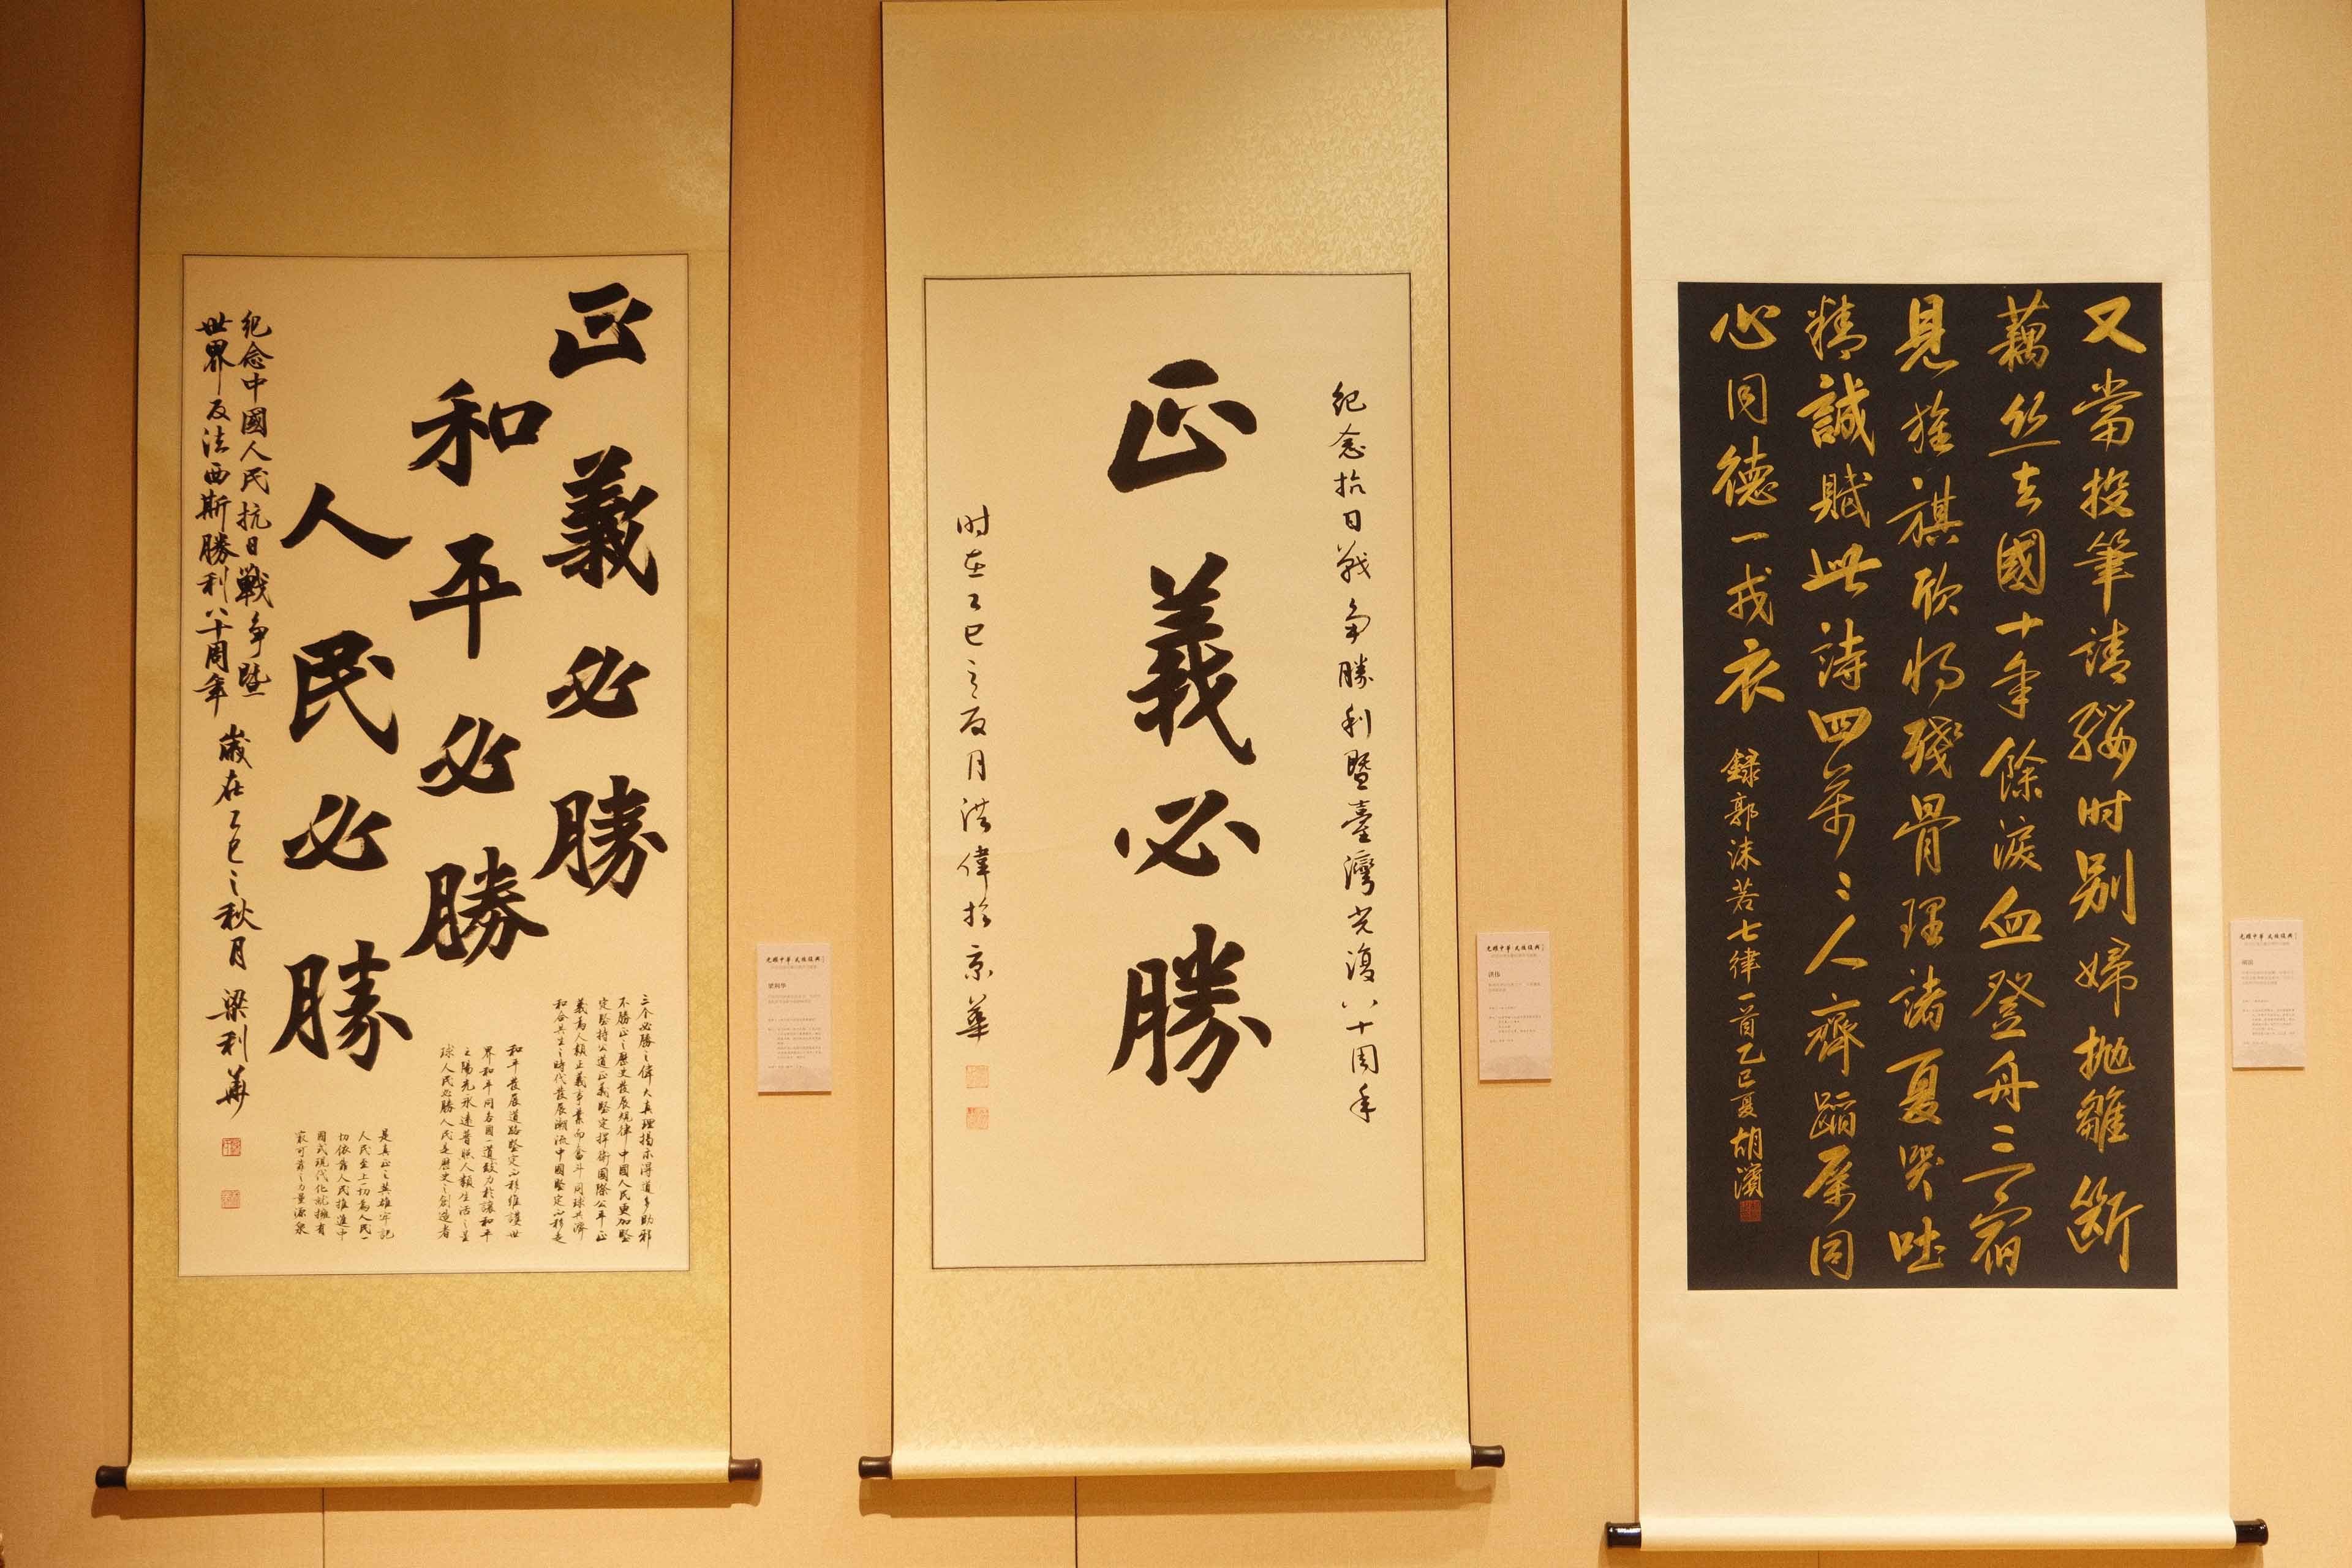 正義必勝
和平必勝
人民必勝
三个必勝之偉大真理揭示得道多助邪
不勝正之歷史發展規律中國人民更加堅
定堅持公道正義堅定捍衛國際公平正
義為人類正義事業而奮斗同球共濟
和合共生之時代發展潮流中國堅定不移走
和平發展道路堅定不移維護世
界和平同各國一道致力於讓和平
之陽光永遠普照人類生活之星
球人民必勝人民是歷史之創造者
是真正之英雄牢記
人民至上一切為人民一
切依靠人民推進中
國式現代化就擁有
最可靠之力量源泉
紀念中國人民抗日戰争暨
世界反法西斯勝利八十周年
歲在乙巳之秋月 梁利華
光耀中華 民族復興
梁利华
紀念抗日戰争勝利暨臺灣光復八十周年
正義必勝
时在乙巳之夏月洪偉於京華
光耀中華 民族復興
洪伟
又當投筆請纓时别婦抛雛斷
藕丝去國十年餘淚血登舟三宿
見旌旗欣将殘骨埋諸夏哭吐
精誠賦此詩四萬〻人齊蹈厲同
心同德一戎衣
錄郭沫若七律一首乙巳夏胡濱
光耀中華 民族復興